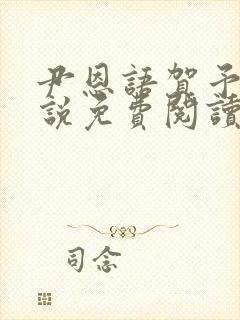 尹恩語賀予
說免費閱讀
司念